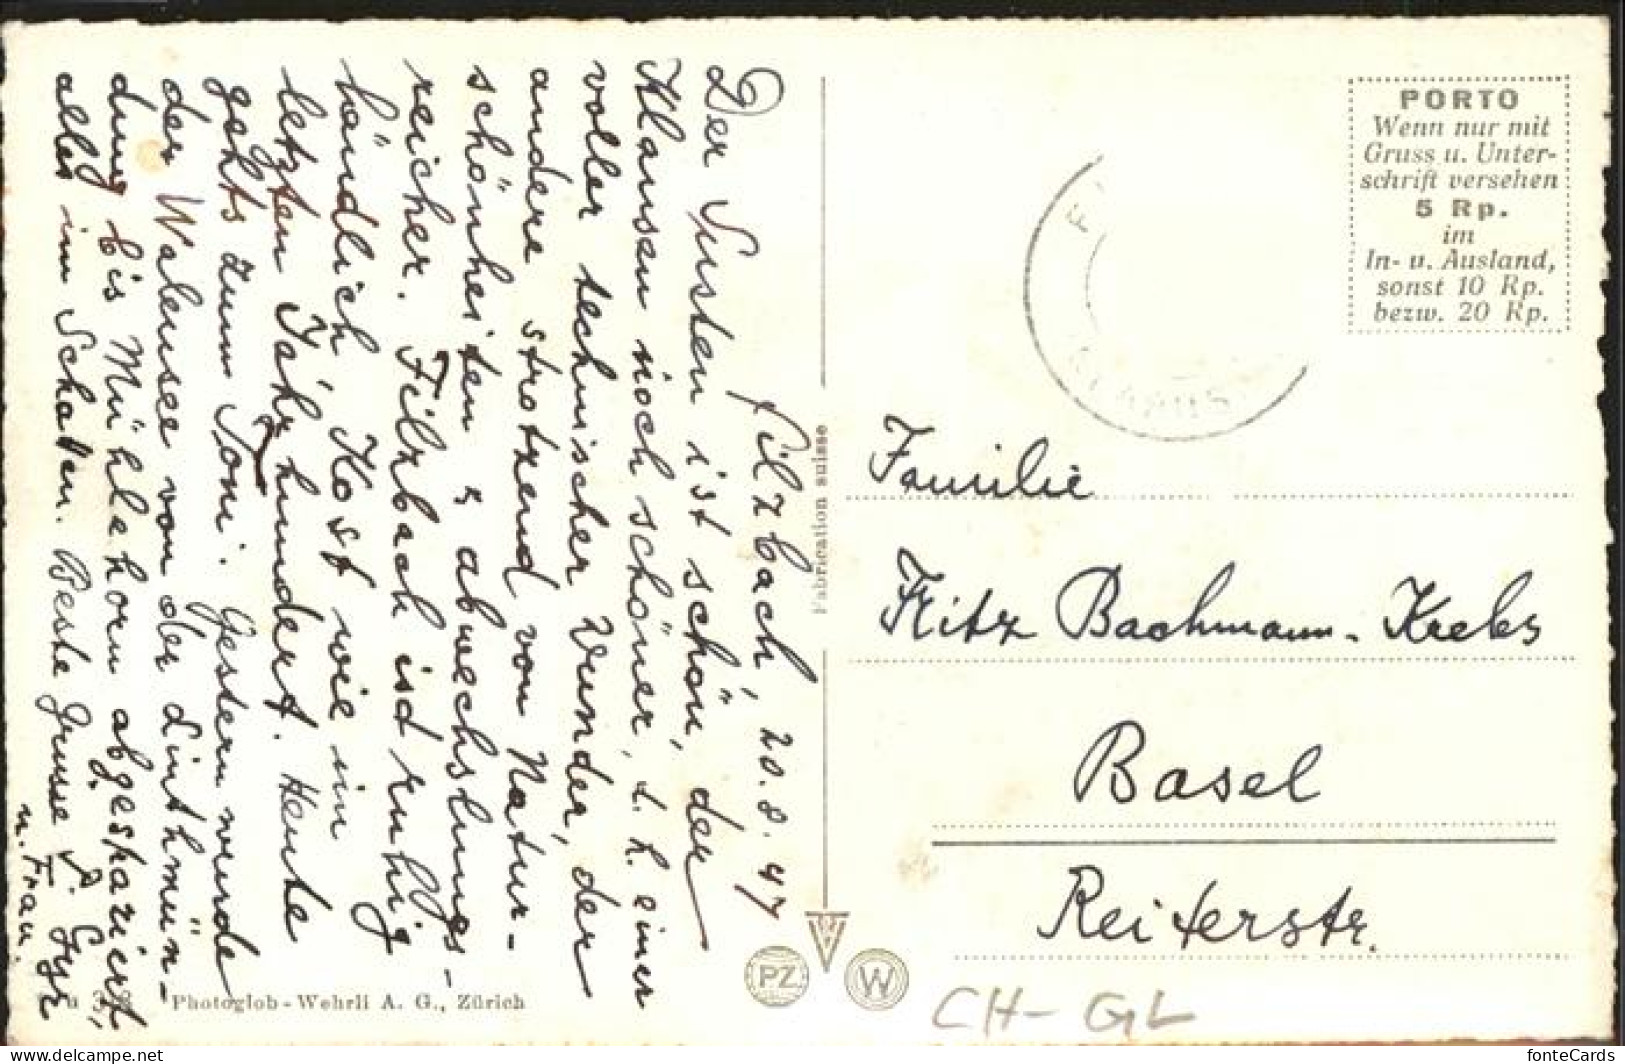 Filzbach, 20.8.47
Der Susten ist schön, der
Klausen noch schöner, d.h. einer
voller technischer Wunder, der
andere strotzend von Natur-
schönheiten & abwechslungs-
reicher. Filzbach isd ruhig
ländlich Kost wie im
letzten Jahrhundert. Heute
gehts zum Toni. Gestern wurde
der Walensee von der Linthmün-
dung bis Mühlehorn abgespaziert,
alles im Schatten. Beste Grüsse
u. Frau.
PORTO
Wenn nur mit
Gruss u. Unter-
schrift versehen
5 Rp.
im
In- u. Ausland,
sonst 10 Rp.
bezw. 20 Rp.
Familie
Fritz Bachmann-Krebs
Basel
Reiterstr.
Fabrication suisse
PZ
W
Photoglob-Wehrli A. G., Zürich
CH-GL
alles-um-die-welt.de
fonteCards